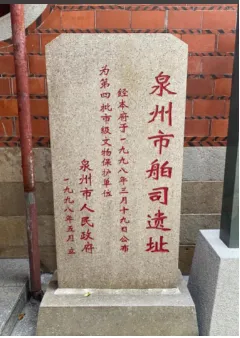 泉州市舶司遗址
经本府于一九九八年三月十九日公布
为第四批市级文物保护单位
泉州市人民政府
一九九八年五月 立